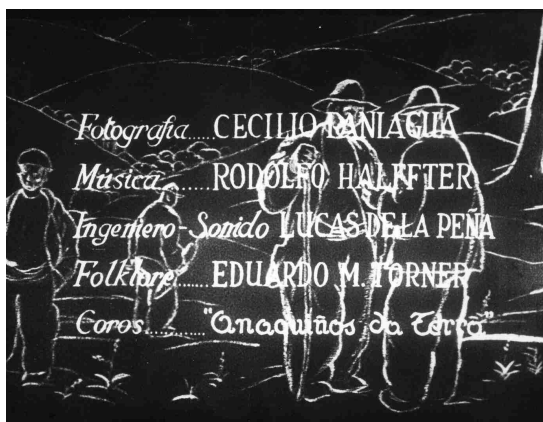 Fotografia.....CECILIO PANIAGUA
Música.......RODOLFO HALFFTER
Ingeniero-Sonido LUCAS DE LA PEÑA
Folklore......EDUARDO M. TORNER
Coros..........."Anaquiños da Terra"